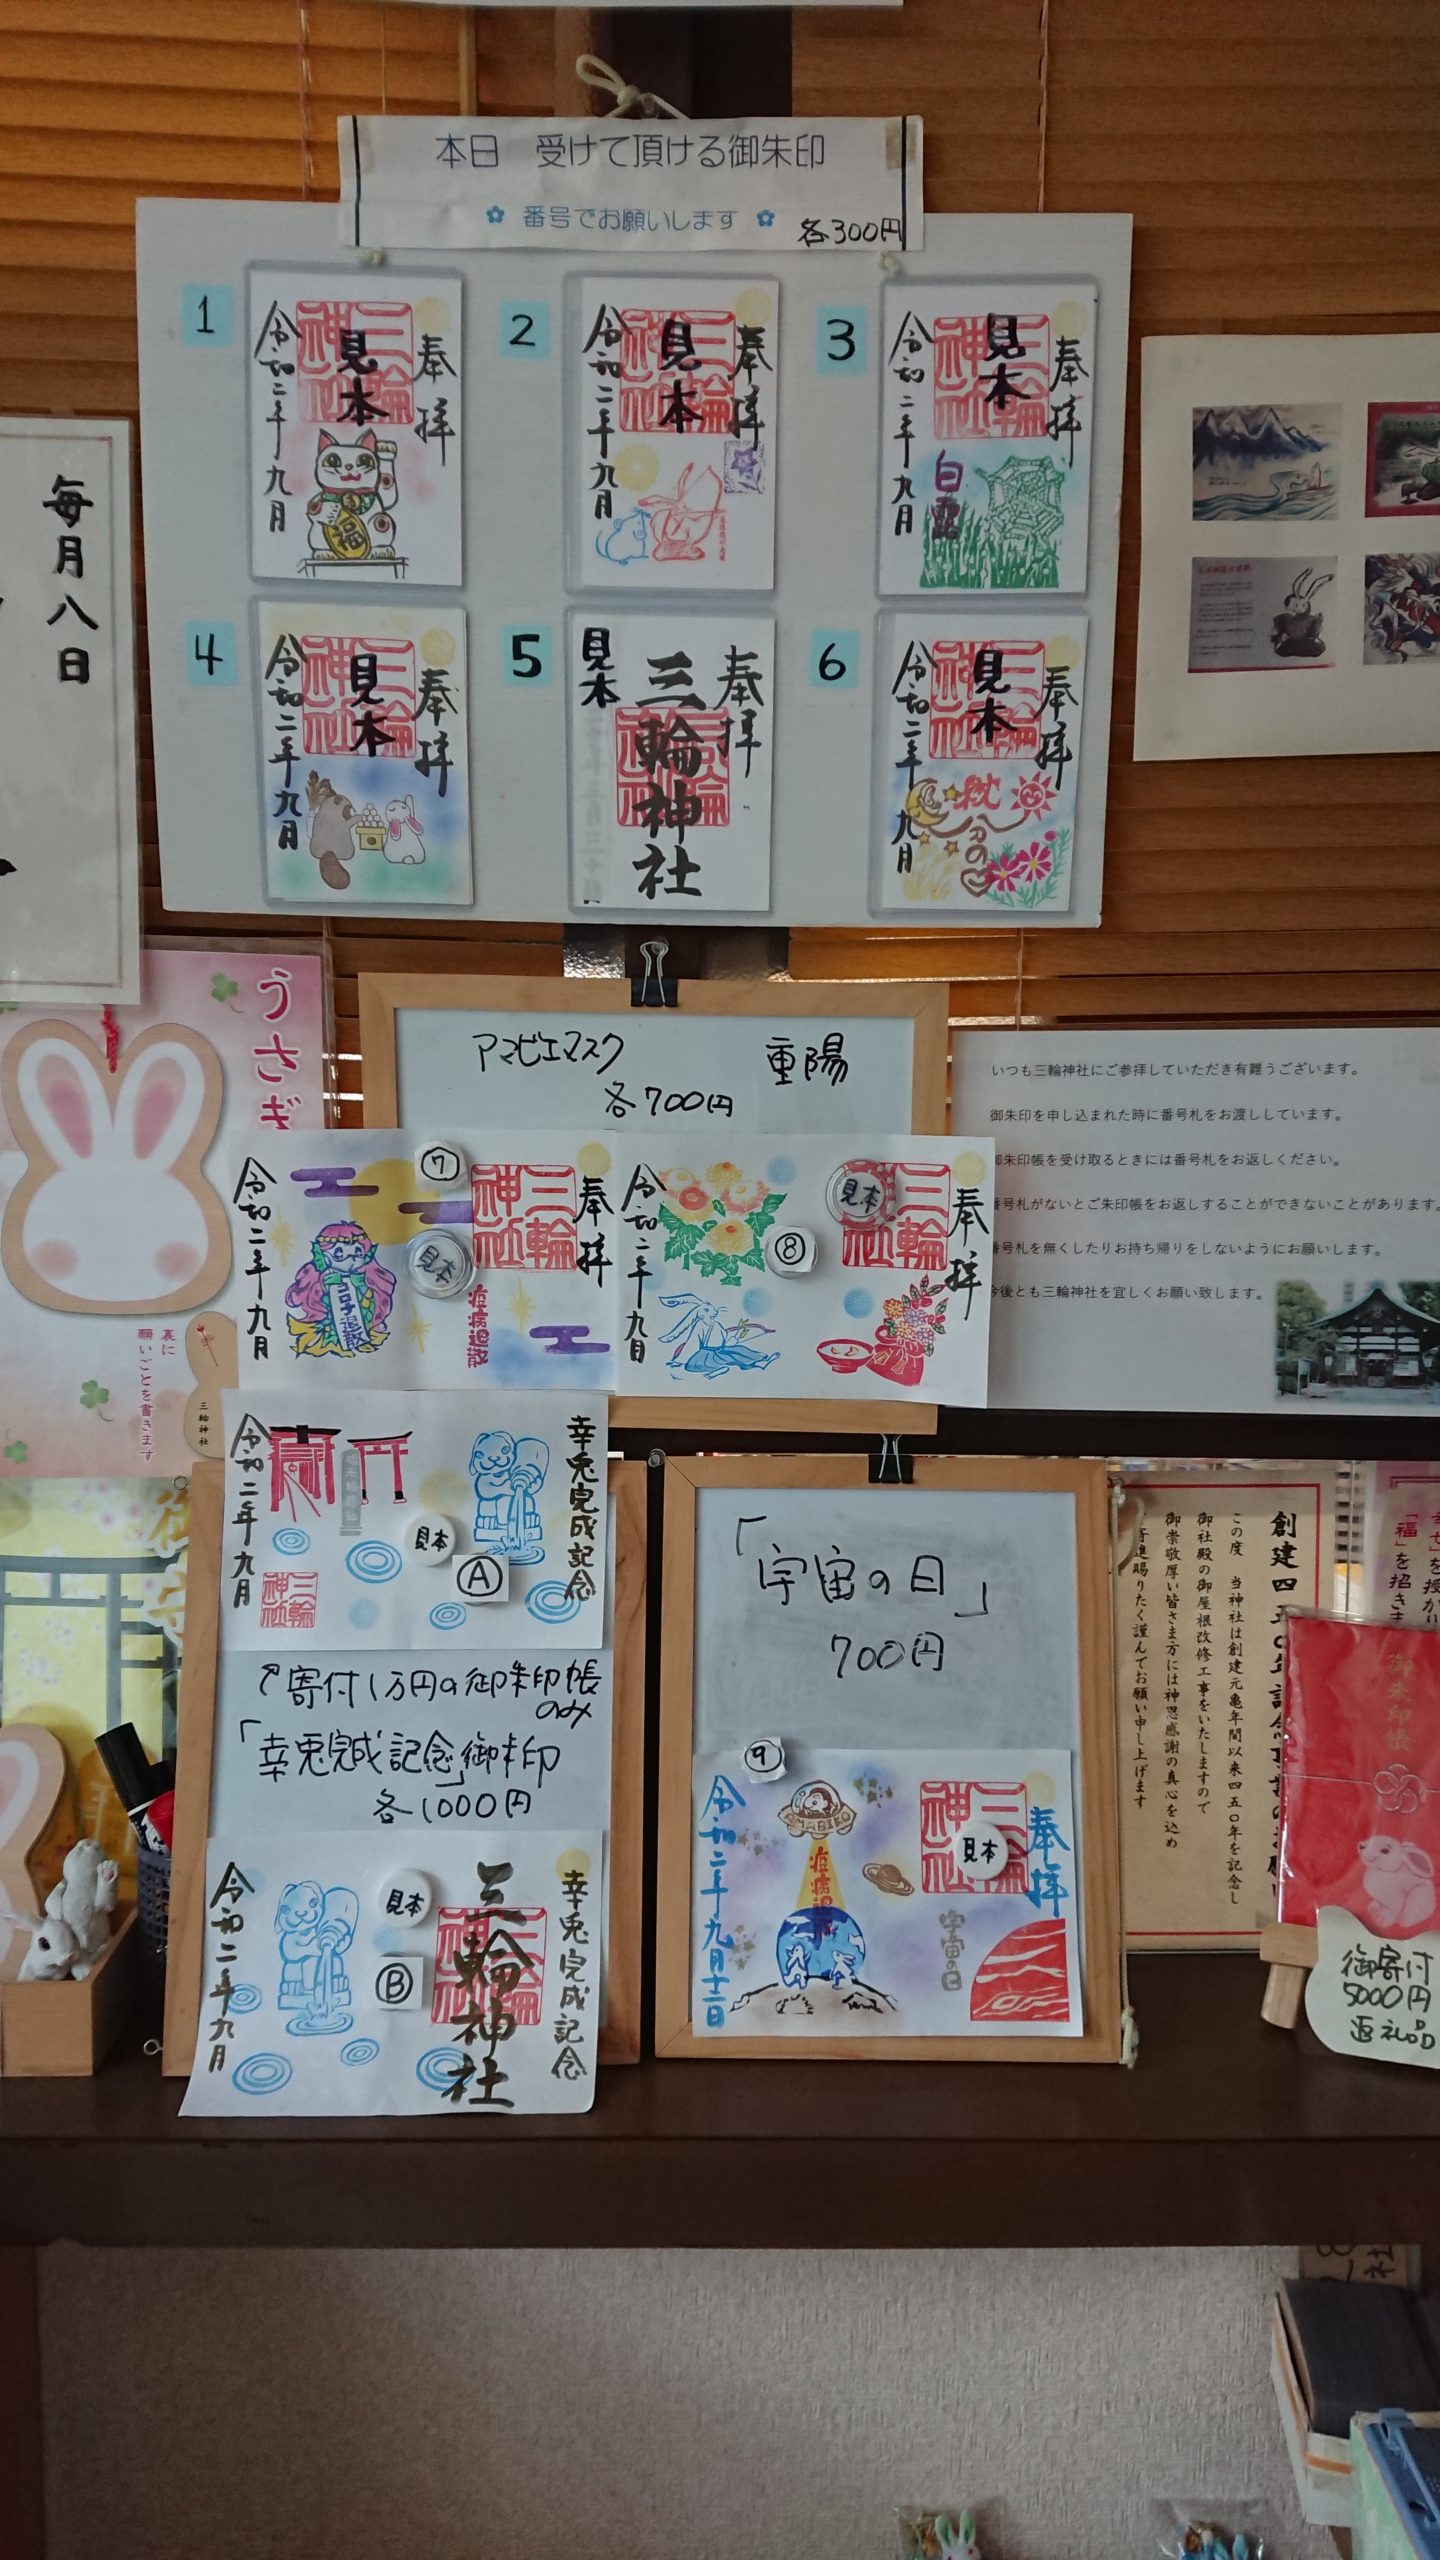 本日 受けて頂ける御朱印
番号でお願いします
各300円
1
奉拝
見本
三輪神社
福
令和二年九月
2
奉拝
見本
三輪神社
令和二年九月
3
奉拝
見本
三輪神社
白露
令和二年九月
4
奉拝
見本
三輪神社
令和二年九月
5
奉拝
三輪神社
見本
6
奉拝
見本
三輪神社
令和二年九月
毎月八日
うさぎ
裏に
願いごとを書きます
三輪神社
アマビエマスク
各700円
重陽
⑦
奉拝
三輪神社
見本
疫病退散
コロナ退散
令和二年九月
⑧
奉拝
三輪神社
見本
令和二年九月
いつも三輪神社にご参拝していただき有難うございます。
御朱印を申し込まれた時に番号札をお渡ししています。
御朱印帳を受け取るときには番号札をお返しください。
番号札がないとご朱印帳をお返しすることができないことがあります。
番号札を無くしたりお持ち帰りをしないようにお願いします。
今後とも三輪神社を宜しくお願い致します。
幸兎完成記念
見本
Ⓐ
三輪神社
令和二年九月
寄付1万円の御朱印帳
のみ
「幸兎完成記念」御朱印
各1000円
幸兎完成記念
三輪神社
見本
Ⓑ
令和二年九月
「宇宙の日」
700円
⑨
奉拝
三輪神社
見本
AMABIKO
宇宙の日
令和二年九月十二日
創建四五〇年記念
この度 当神社は創建元亀年間以来四五〇年を記念し
御社殿の御屋根改修工事をいたしますので
御崇敬厚い皆さま方には神恩感謝の真心を込め
寄進賜りたく謹んでお願い申し上げます
「福」を招きま
御朱印帳
御寄付
5000円
返礼品